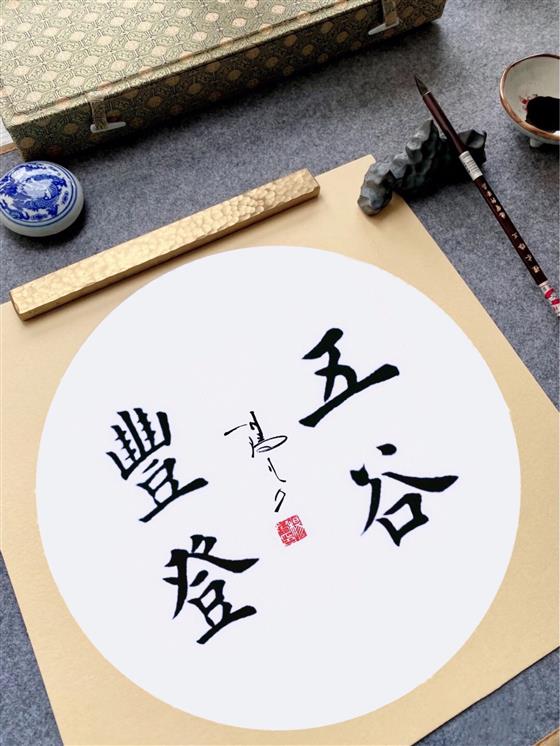 五谷
豐登